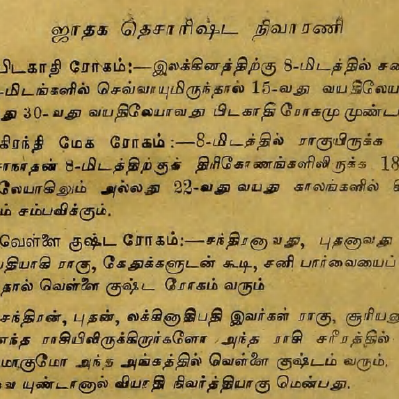 ஜாதக தெசாரிஷ்ட நிவாரணி
பிடகாதி ரோகம்:—இலக்கினத்திற்கு 8-மிடத்தில்
-மிடங்களில் செவ்வாயுமிருந்தால் 15-வது வயதிலேய
து 30-வது வயதிலேயாவது பிடகாதி ரோகமு முண்ட
கிரந்தி மேக ரோகம்:—8-மிடத்தில் ராகுயிருக்க
சாநாதன் 8-மிடத்திற்குத் திரிகோணங்களிலிருக்க 18
லேயாகிலும் அல்லது 22-வது வயது காலங்களில்
ம் சம்பவிக்கும்.
வெள்ளை குஷ்ட ரோகம்:—சந்திரனாவது, புதனாவது
பதியாகி ராகு, கேதுக்களுடன் கூடி, சனி பார்வையைப்
தால் வெள்ளை குஷ்ட ரோகம் வரும்
சந்திரன், புதன், லக்கினாதிபதி இவர்கள் ராகு, சூரிய
எந்த ராசியிலிருக்கிறார்களோ அந்த ராசி சரீரத்தில்
மாகுமோ அந்த அங்கத்தில் வெள்ளை குஷ்டம் வரும்.
வ யுண்டானால் வியாதி நிவர்த்தியாகு மென்பது.